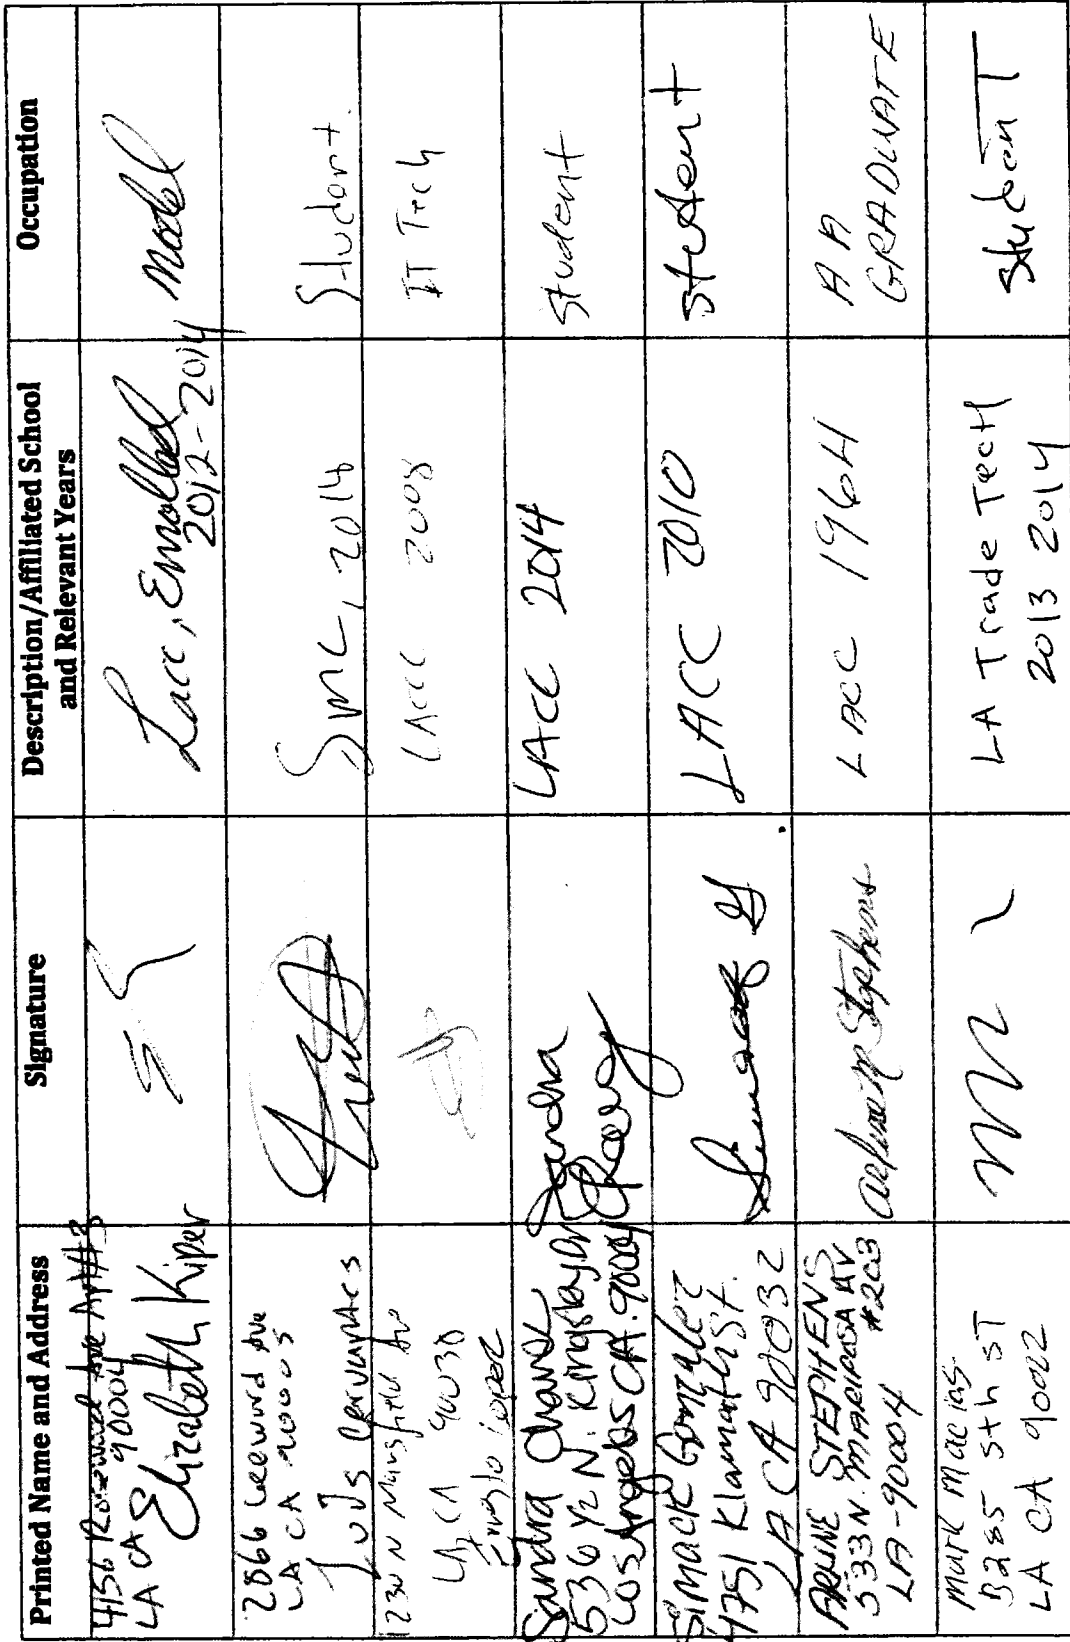 Printed Name and Address
Signature
Description/Affiliated School
and Relevant Years
Occupation
4156 Rosewood Ave Apt#3
LA CA 90004
Elizabeth Kiper
Lacc, Enrolled
2012-2014
Model
2866 Leeward Ave
LA CA 90005
Luis Cervantes
SMC, 2014
Student.
1230 N Mansfield Av
LA, CA 90038
Lopez
LACC 2008
IT Tech
Sandra Chavez
536 1/2 N. Kingsley Dr
Los Angeles CA. 90004
Sandra
Chavez
LACC 2014
Student
Simack Gonzalez
4751 Klamath St.
LA CA 90032
LACC 2010
student
ARLINE STEPHENS
533 N. MARIPOSA AV
#203
LA-90004
Arline M Stephens
LACC 1964
AA
GRADUATE
Mark Macias
3285 5th ST
LA CA 90022
LA Trade Tech
2013 2014
Student